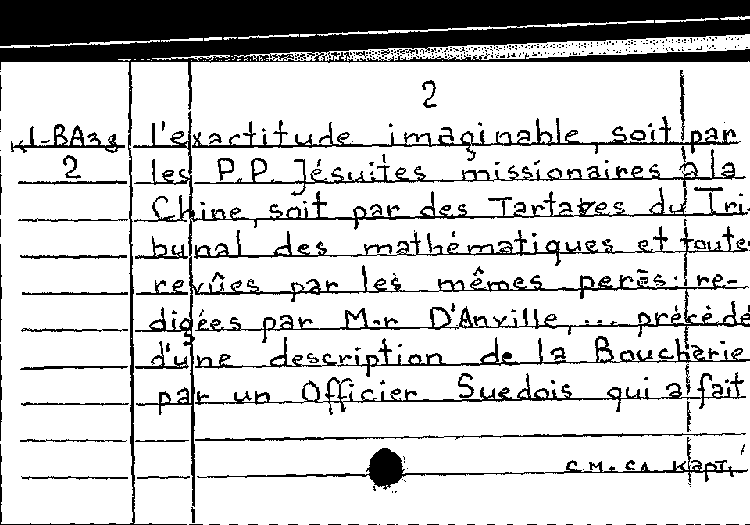 2
KI-BA38 l'exactitude imaginable, soit par
2 les P.P. Jésuites missionaires à la
Chine, soit par des Tartares du Tri-
bunal des mathématiques et toute
revûes par les mêmes perēs: re-
digées par M-r D'Anville, ... précédé
d'une description de la Boucharie
par un Officier Suedois qui a fait
см. сл. карт.